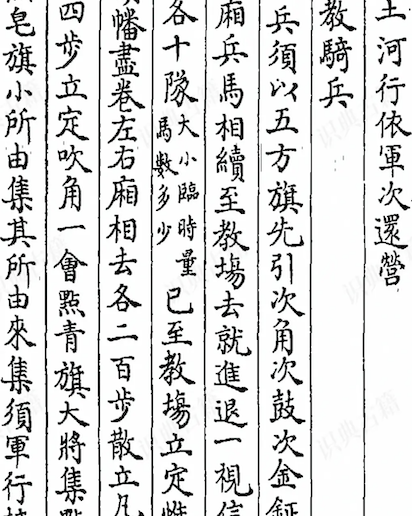 土河行依軍次還營
教騎兵
兵須以五方旗先引次角次鼓次金鉦
廂兵馬相續至教塲去就進退一視信
各十隊大小臨時量馬數多少已至教塲立定惟
幡盡卷左右廂相去各二百步散立凡
四步立定吹角一會點青旗大將集點
皂旗小所由集其所由來集須軍行